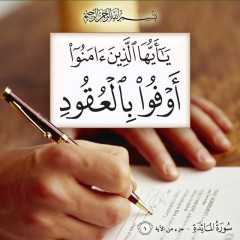 بسم الله الرحمن الرحيم
يَـٰٓأَيُّهَا ٱلَّذِينَ ءَامَنُوٓا۟
أَوْفُوا۟ بِٱلْعُقُودِ
سُورَةُ المَائِدَةِ - جزء من الآية ١